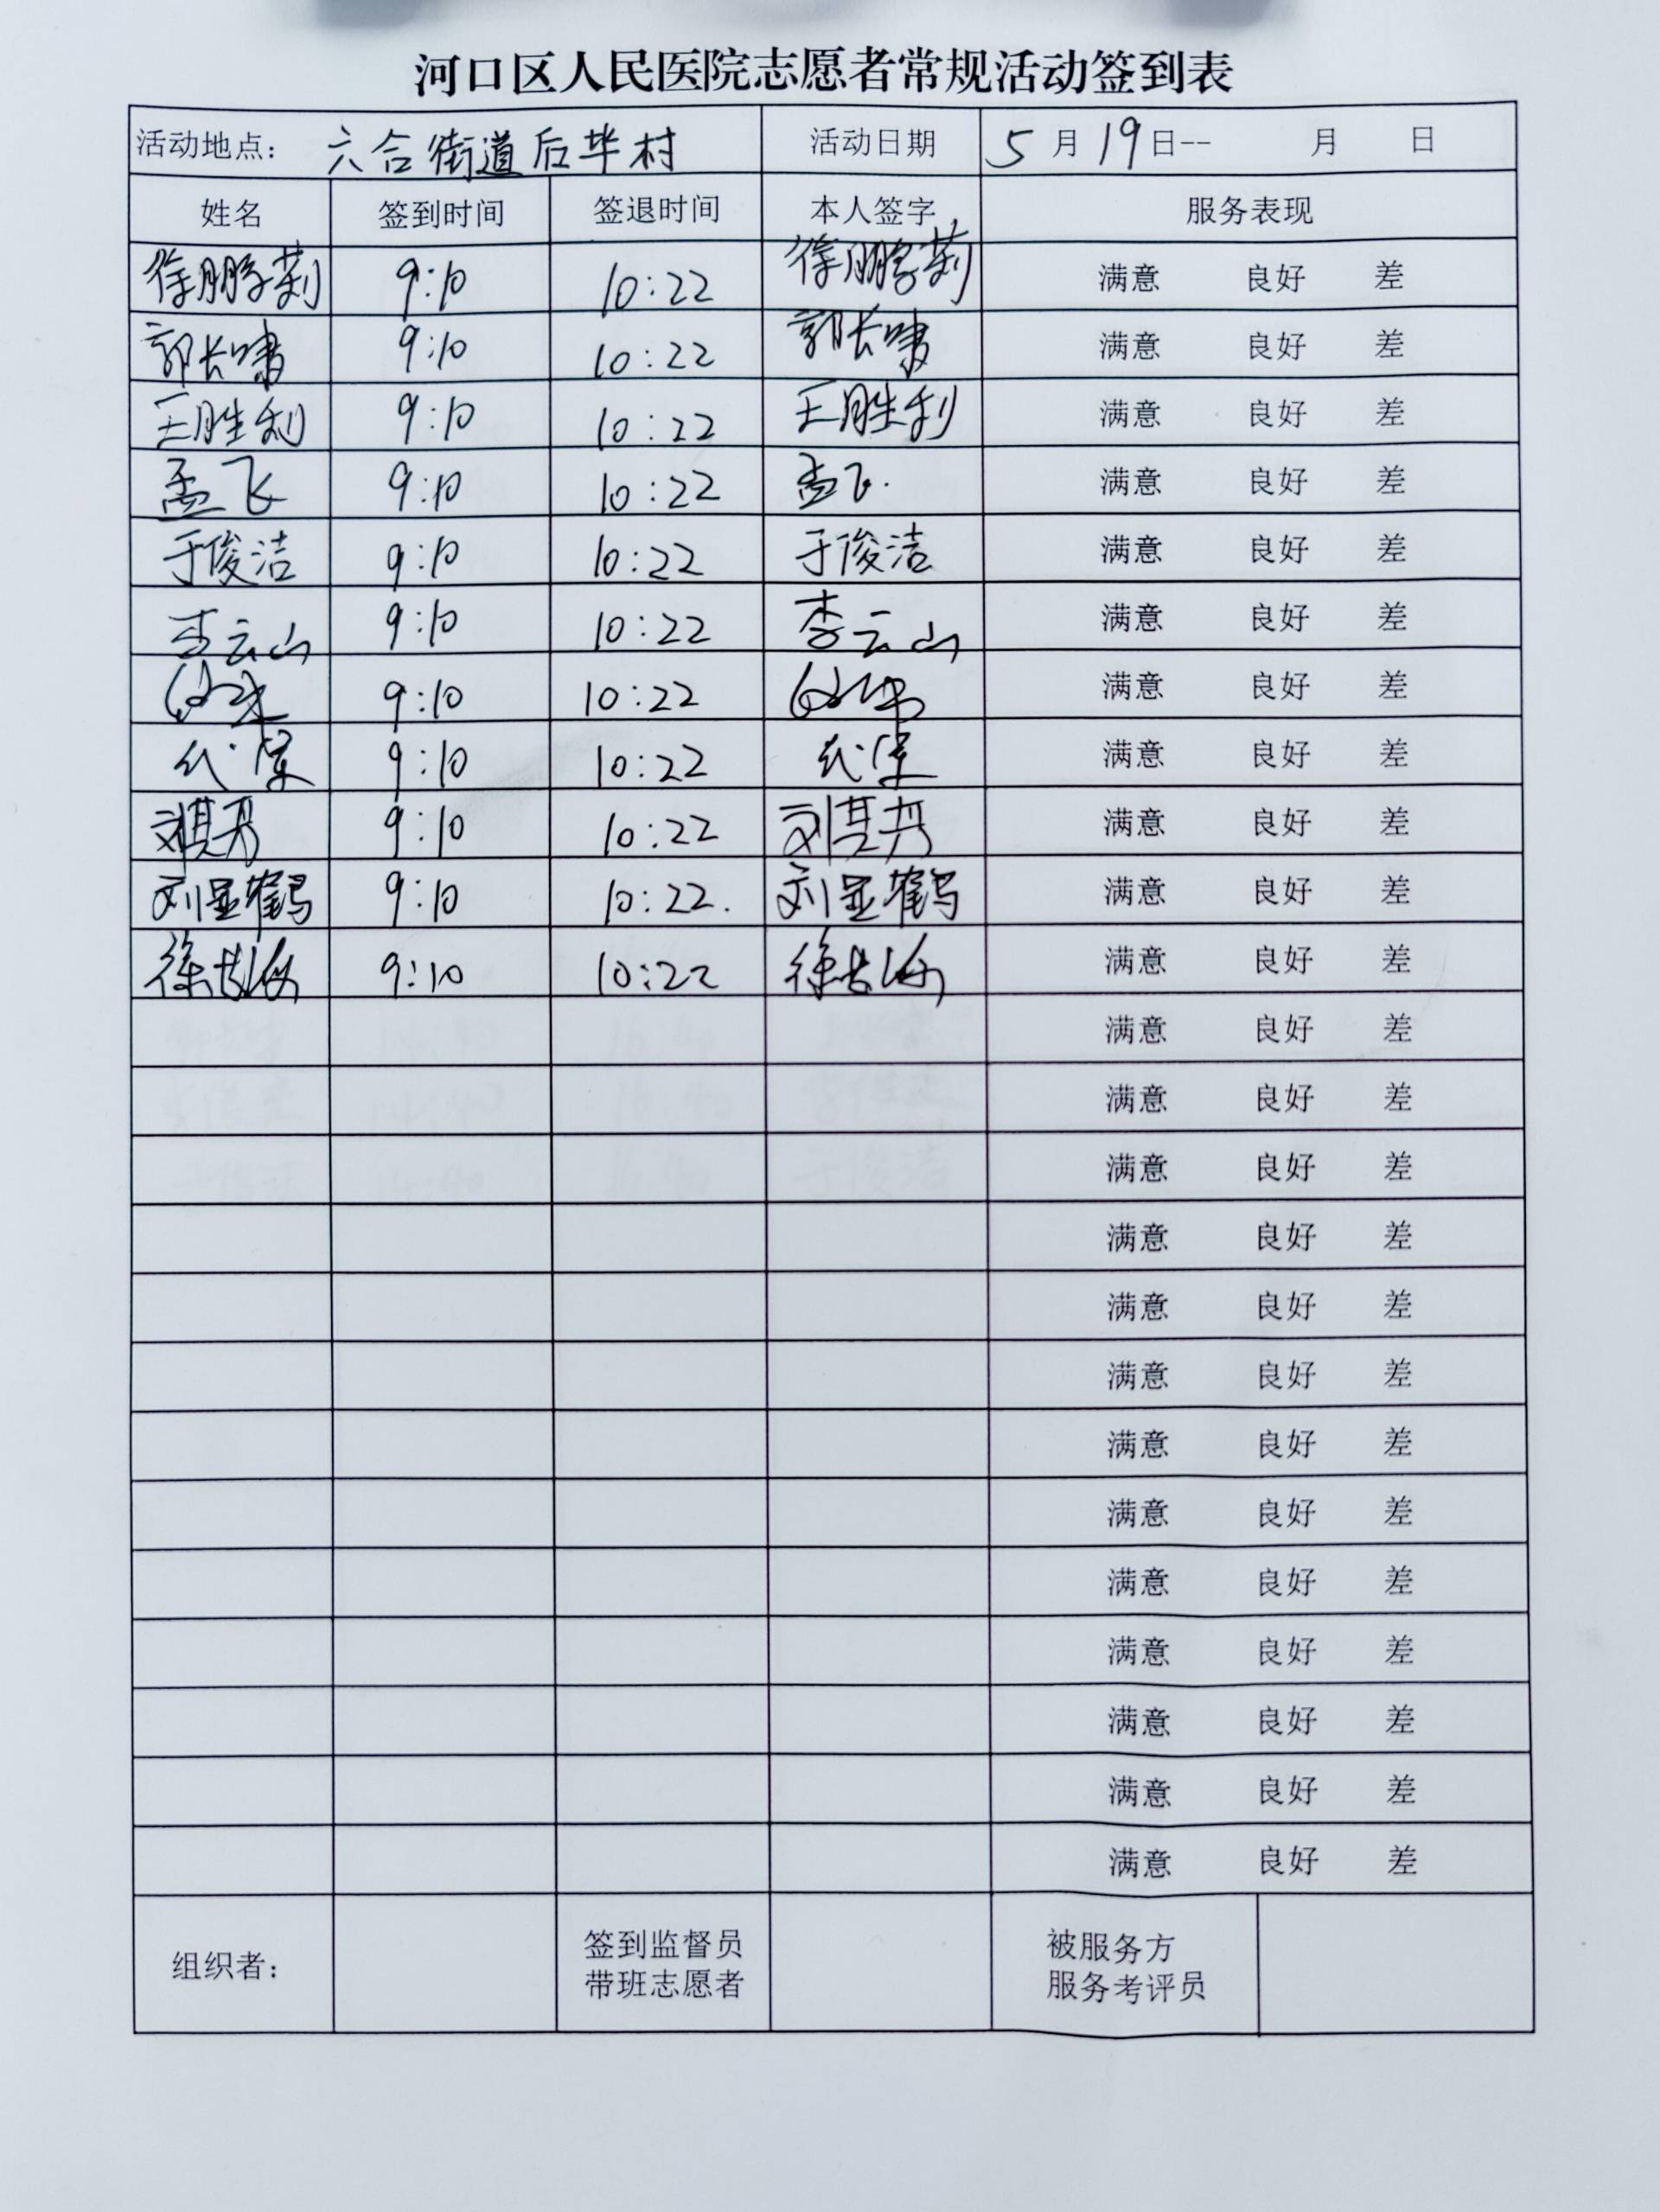 河口区人民医院志愿者常规活动签到表
活动地点: 六合街道后毕村 活动日期 5月19日-- 月 日
姓名 签到时间 签退时间 本人签字 服务表现
徐鹏莉 9:10 10:22 徐鹏莉 满意 良好 差
郭长啸 9:10 10:22 郭长啸 满意 良好 差
王胜利 9:10 10:22 王胜利 满意 良好 差
孟飞 9:10 10:22 孟飞. 满意 良好 差
于俊洁 9:10 10:22 于俊洁 满意 良好 差
李云山 9:10 10:22 李云山 满意 良好 差
9:10 10:22 满意 良好 差
9:10 10:22 满意 良好 差
刘其丹 9:10 10:22 刘其丹 满意 良好 差
刘显鹤 9:10 10:22. 刘显鹤 满意 良好 差
徐长海 9:10 10:22 徐长海 满意 良好 差
满意 良好 差
满意 良好 差
满意 良好 差
满意 良好 差
满意 良好 差
满意 良好 差
满意 良好 差
满意 良好 差
满意 良好 差
满意 良好 差
满意 良好 差
满意 良好 差
满意 良好 差
组织者: 签到监督员 被服务方
带班志愿者 服务考评员